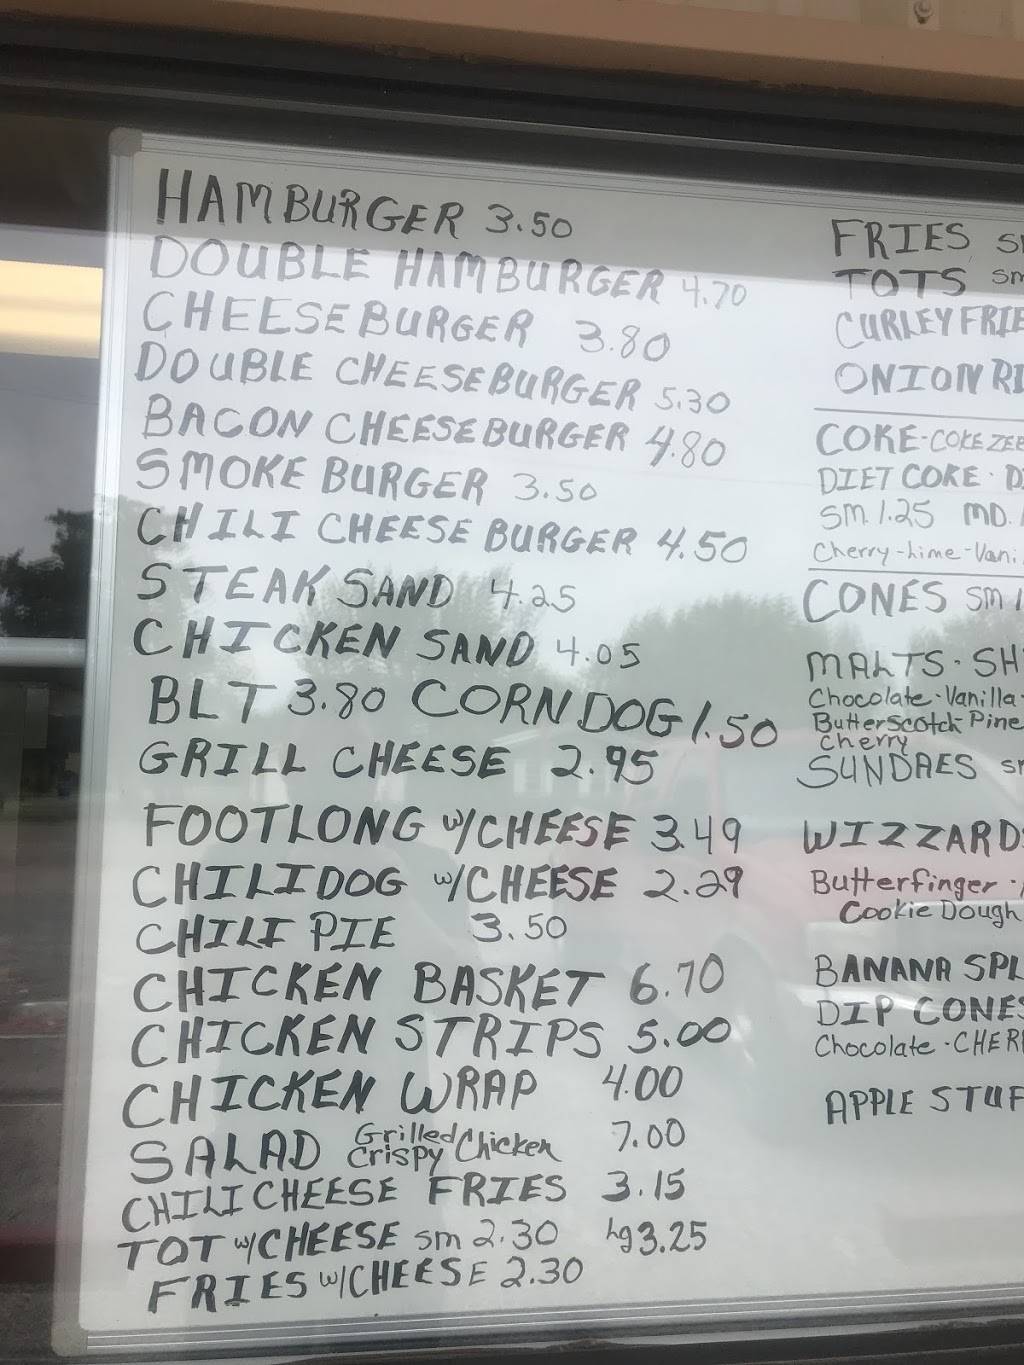 HAMBURGER 3.50
DOUBLE HAMBURGER 4.70
CHEESEBURGER 3.80
DOUBLE CHEESEBURGER 5.30
BACON CHEESEBURGER 4.80
SMOKE BURGER 3.50
CHILI CHEESE BURGER 4.50
STEAK SAND 4.25
CHICKEN SAND 4.05
BLT 3.80 CORN DOG 1.50
GRILL CHEESE 2.95
FOOTLONG w/CHEESE 3.49
CHILIDOG w/CHEESE 2.29
CHILI PIE 3.50
CHICKEN BASKET 6.70
CHICKEN STRIPS 5.00
CHICKEN WRAP 4.00
SALAD Grilled Crispy Chicken 7.00
CHILI CHEESE FRIES 3.15
TOT w/CHEESE sm 2.30 lg 3.25
FRIES w/CHEESE 2.30
FRIES
TOTS sm
CURLEY
ONION
COKE-COKE
DIET COKE ·
SM. 1.25 MD.
Cherry-Lime-
CONES SM
MALTS ·
Chocolate-Vanilla
Butterscotch-
Cherry
SUNDAES
WIZZARD
Butterfinger ·
Cookie Dough
BANANA
DIP CONES
Chocolate ·
APPLE